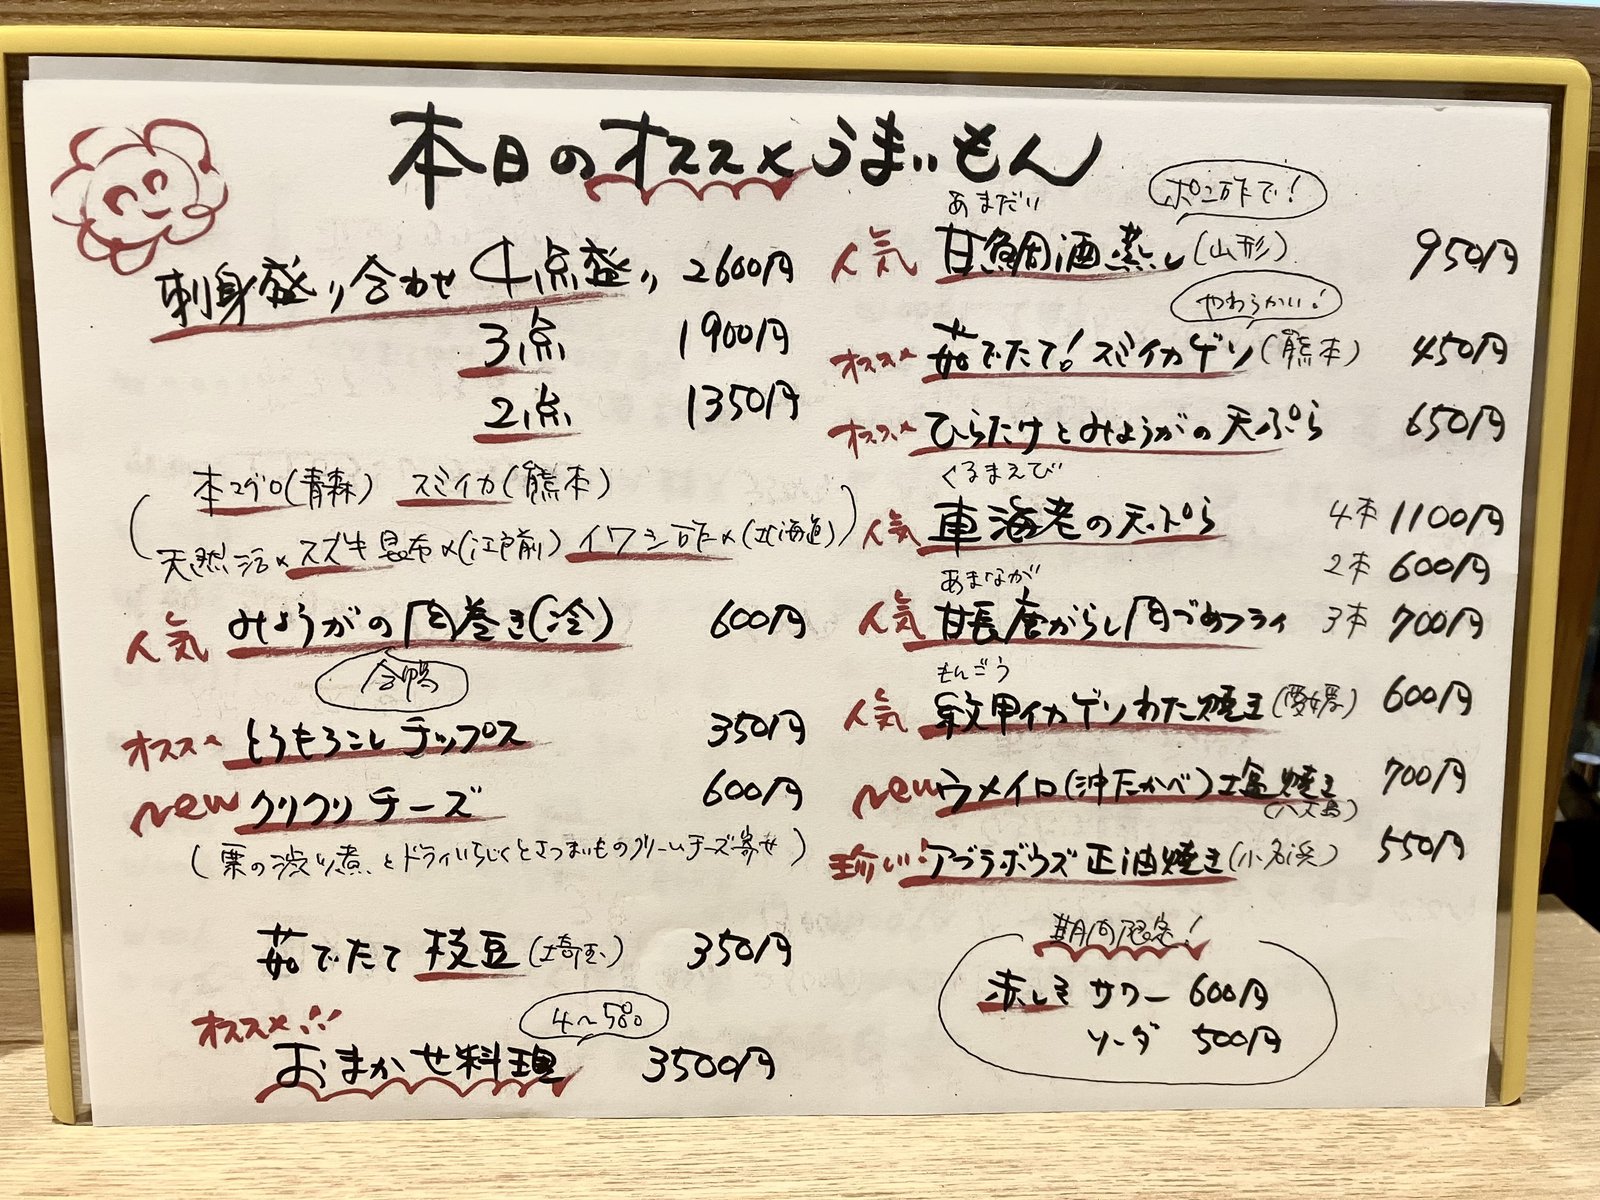 本日のオススメうまいもん
刺身盛り合わせ 4点盛り 2600円
3点 1900円
2点 1350円
(本マグロ(青森) スミイカ(熊本)
天然活〆スズキ昆布〆(江戸前) イワシ酢〆(北海道))
人気 みょうがの肉巻き(冷) 600円
合鴨
オススメ とうもろこしチップス 350円
New クリクリチーズ 600円
(栗の渋皮煮とドライいちじくとさつまいものクリームチーズ寄せ)
茹でたて枝豆(埼玉) 350円
オススメ!!!
4〜5品
おまかせ料理 3500円
ポン酢で!
あまだい
人気 甘鯛酒蒸し(山形) 950円
やわらかい!
オススメ 茹でたて!スミイカゲソ(熊本) 450円
オススメ ひらたけとみょうがの天ぷら 650円
くるまえび
人気 車海老の天ぷら 4本 1100円
2本 600円
あまなが
人気 甘長唐がらし肉づめフライ 3本 700円
もんごう
人気 紋甲イカゲソわた焼き(愛媛) 600円
New ウメイロ(沖たかべ)塩焼き 700円
(八丈島)
珍しい! アブラボウズ正油焼き(小名浜) 550円
期間限定!
赤しそサワー 600円
ソーダ 500円